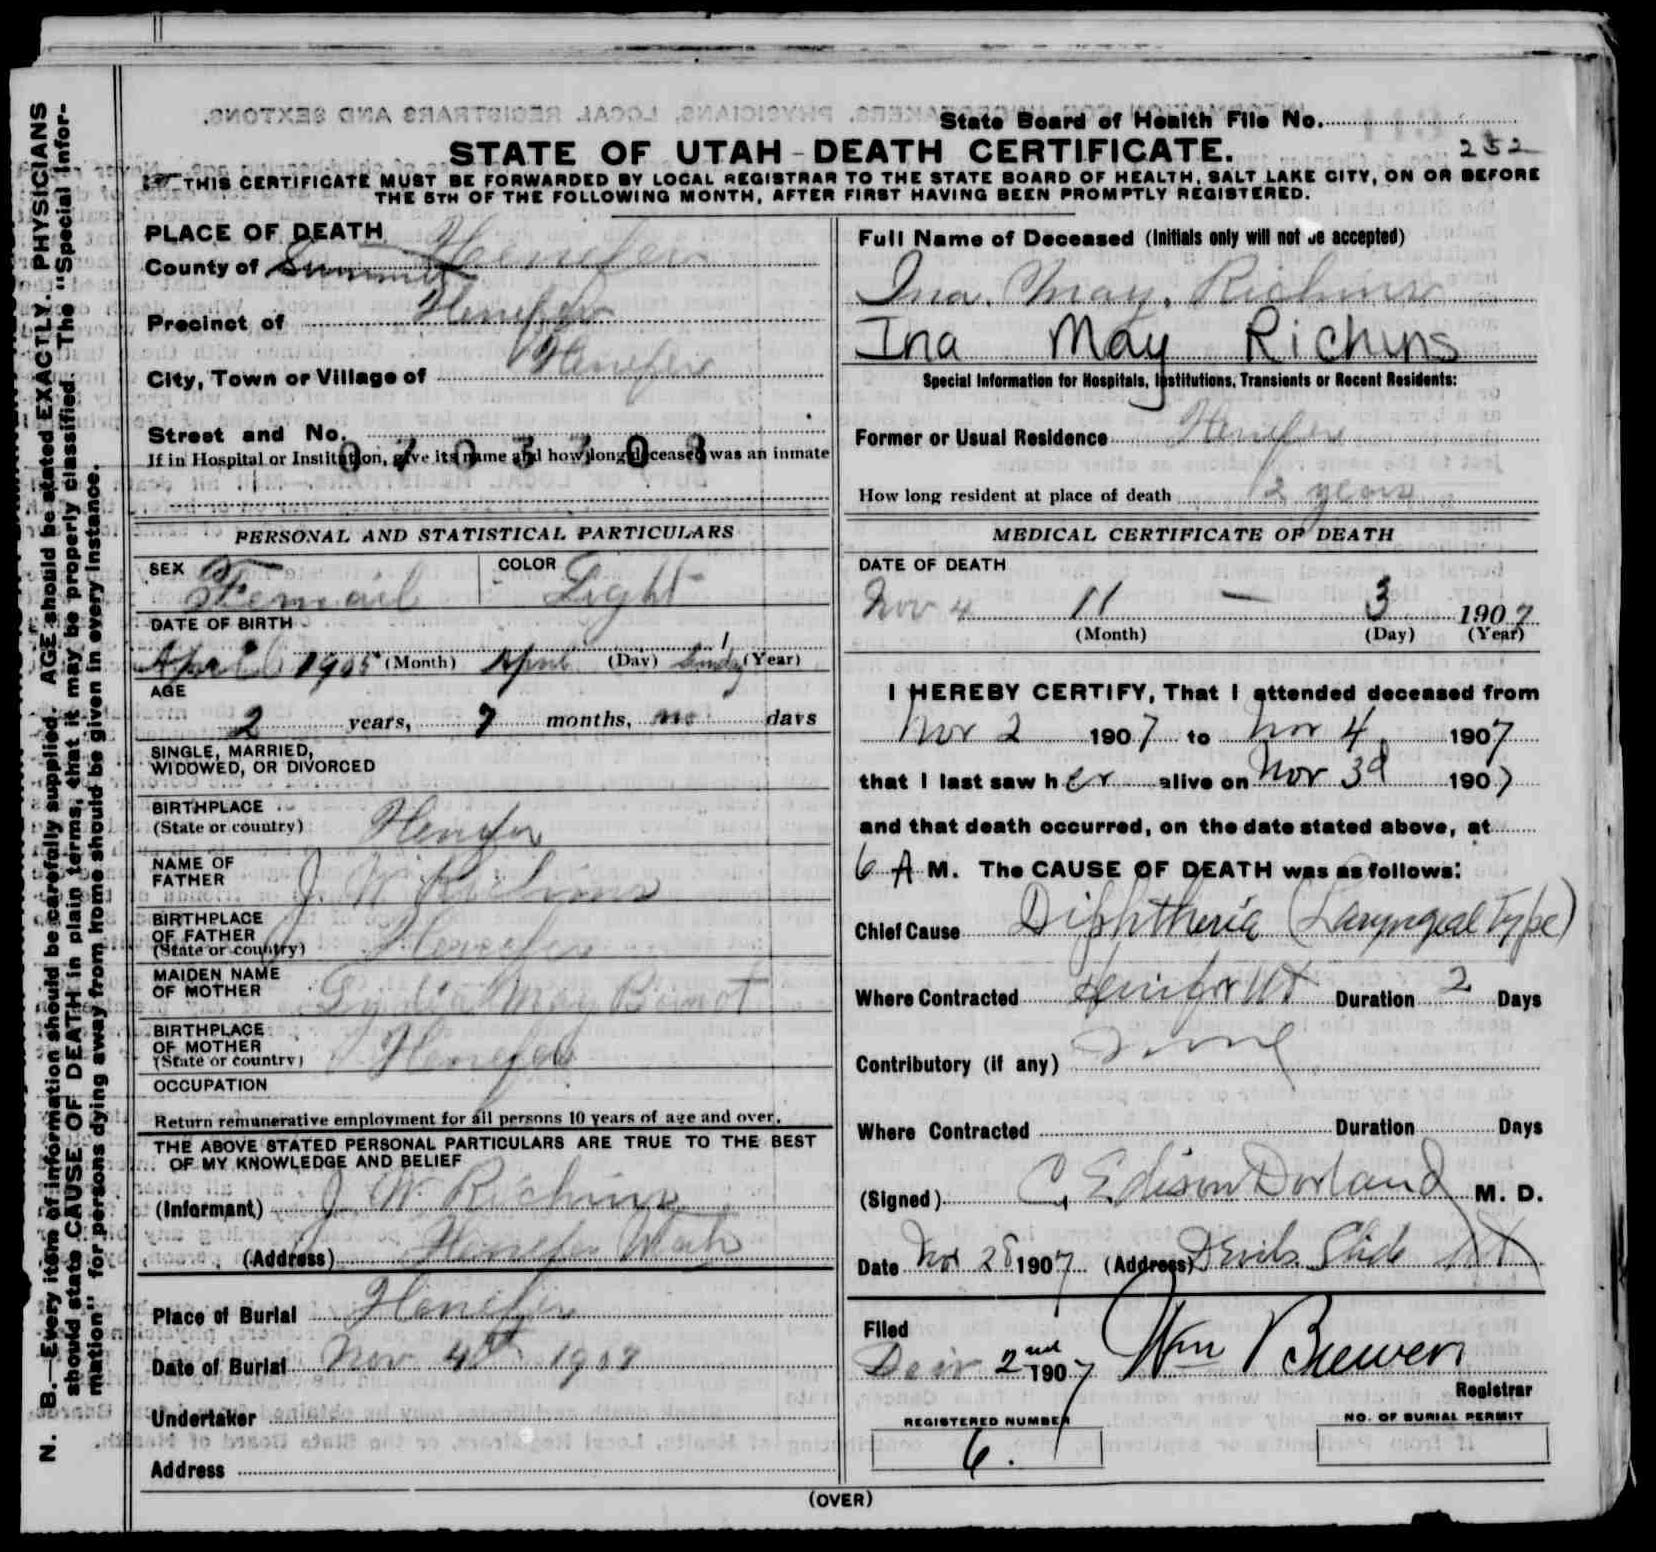 State Board of Health File No.
252
STATE OF UTAH - DEATH CERTIFICATE.
THIS CERTIFICATE MUST BE FORWARDED BY LOCAL REGISTRAR TO THE STATE BOARD OF HEALTH, SALT LAKE CITY, ON OR BEFORE
THE 5TH OF THE FOLLOWING MONTH, AFTER FIRST HAVING BEEN PROMPTLY REGISTERED.
PLACE OF DEATH Henefer
County of Summit
Precinct of Henefer
City, Town or Village of Henefer
Street and No.
If in Hospital or Institution, give its name and how long deceased was an inmate
Full Name of Deceased (Initials only will not be accepted)
Ina. May. Richins
Ina May Richins
Special Information for Hospitals, Institutions, Transients or Recent Residents:
Former or Usual Residence Henefer
How long resident at place of death 2 years
PERSONAL AND STATISTICAL PARTICULARS
SEX Femail COLOR Light
DATE OF BIRTH
1905 (Month) April (Day) (Year)
AGE
2 years, 7 months, no days
SINGLE, MARRIED,
WIDOWED, OR DIVORCED
BIRTHPLACE
(State or country) Henefer
NAME OF
FATHER J. W. Richins
BIRTHPLACE
OF FATHER
(State or country) Henefer
MAIDEN NAME
OF MOTHER Lydia May
BIRTHPLACE
OF MOTHER
(State or country) Henefer
OCCUPATION
Return remunerative employment for all persons 10 years of age and over.
THE ABOVE STATED PERSONAL PARTICULARS ARE TRUE TO THE BEST
OF MY KNOWLEDGE AND BELIEF
(Informant) J W Richins
(Address) Henefer Utah
Place of Burial Henefer
Date of Burial Nov 4th 1907
Undertaker
Address
MEDICAL CERTIFICATE OF DEATH
DATE OF DEATH
Nov 4 11 — 3 1907
(Month) (Day) (Year)
I HEREBY CERTIFY, That I attended deceased from
Nov 2 1907 to Nov 4 1907
that I last saw her alive on Nov 3d 1907
and that death occurred, on the date stated above, at
6 A M. The CAUSE OF DEATH was as follows:
Chief Cause Diphtheria (Laryngeal Type)
Where Contracted Henifer Ut Duration 2 Days
Contributory (if any) None
Where Contracted Duration Days
(Signed) C. Edison Dorland M. D.
Date Nov 28 1907 (Address) Devils Slide Ut
Filed
2nd 1907 Wm Brewer
Registrar
REGISTERED NUMBER
6.
NO. OF BURIAL PERMIT
(OVER)
N. B.—Every item of information should be carefully supplied. AGE should be stated EXACTLY. PHYSICIANS
should state CAUSE OF DEATH in plain terms, that it may be properly classified. The "Special Infor-
mation" for persons dying away from home should be given in every instance.